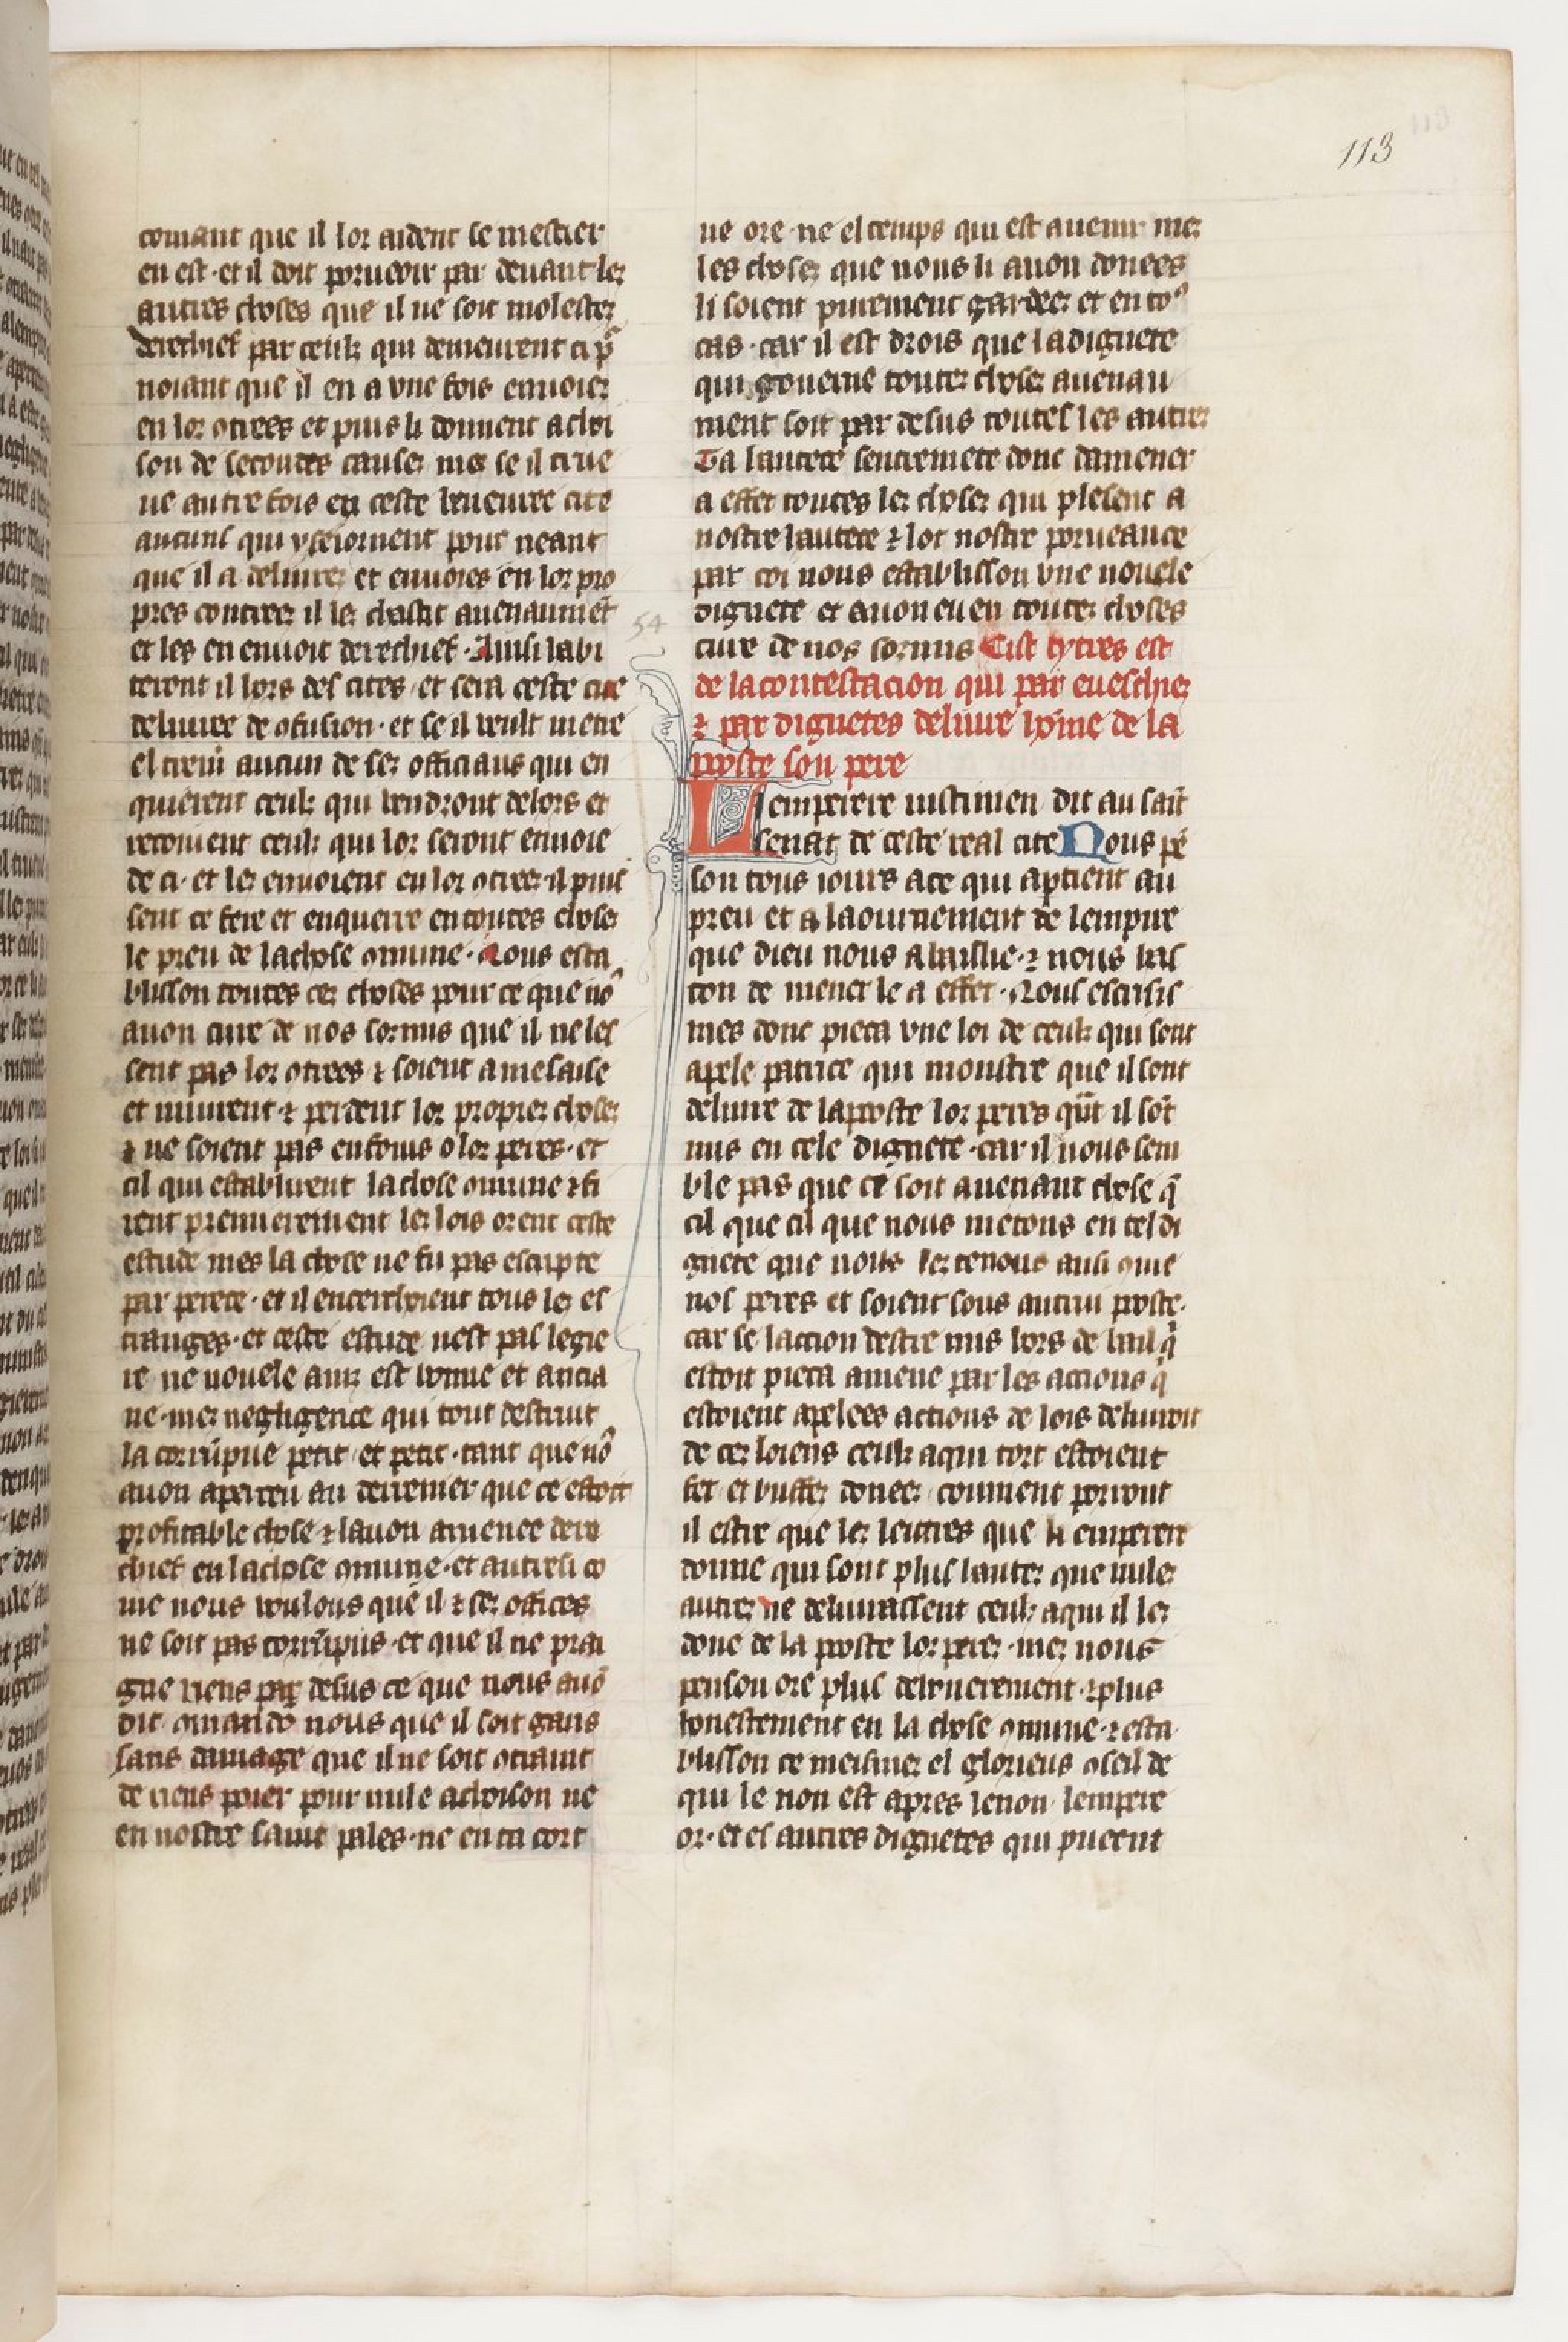 113
comant que il lor aident se mestier
en est · et il doit porueoir par deuant lez
autres choses que il ne soit molestez
derechief par ceulz qui demeurent ci p̄
noiant que il en a vne fois enuoiez
en lor ɔtrees et puis li donnent achoi
son de secondes causes mes se il true
ue autre fois en ceste beneuree cite
aucuns qui yseiornent pour neant
que il a deliurez et enuoies en lor pro
pres contrees il les chastit auenaumēt
et les en enuoit derechief · Ainsi labi
teront il hors des cites · et sera ceste cite
deliuree de ɔfusion · et se il veult metre
el creui aucun de ses officiaus qui en
quierent ceulz qui vendront dehors et
retornent ceulz qui lor seront enuoie
de ci · et les enuoient en lor ɔtrees · il puis
sent ce fere et enquerre en toutes choses
le preu de lachose ɔmune · Nous esta
blisson toutes ces choses pour ce que no9
auon cure de nos sormis que il ne les
sent pas lor ɔtrees ⁊ soient a mesaise
et muirent · ⁊ perdent lor propres choses
⁊ ne soient pas enfouis o lor peres · et
cil qui establirent lachose ɔmune ⁊ fi
rent premierement les lois orent ceste
estude mes la chose ne fu pas escripte
par perece · et il encerchoient tous les es
tranges · et ceste estude nest pas legie
re ne nouele ainz est bonne et ancia
ne · mez negligence qui tout destruit
la corrūpue petit et petit · tant que no9
auon aperceu au derrenier que ce estoit
profitable chose ⁊ lauon amenee dere
chief en lachose ɔmune · et autresi co
me nous voulons que il ⁊ ses offices
ne soit pas corrūpus · et que il ne prai
gne riens par desus ce que nous auō
dit ɔmando nous que il soit gans
sans damage que il ne soit ɔtraint
de riens poier pour nule achoison ne
en nostre saint pales · ne en ta cort
ne ore · ne el temps qui est auenir mez
les choses que nous li auon donees
li soient purement gardees et en to9
cas · car il est drois que la dignete
qui gouerne toutes choses auenau
ment soit par desus toutes les autres
Ta hautece sentremete donc damener
a effet toutes les choses qui plesent a
nostre hautece ⁊ lor nostre porueance
par coi nous establisson vne nouele
dignete et auon eu en toutes choses
cure de nos sormis Cist tytres est
de la contestacion qui par eueschiez
⁊ par dignetes deliure hōme de la
poste son pere
Lemperere iustinien dit au saīt
senat de ceste real cite Nous pē
son tous iours a ce qui aptient au
preu et a laournement de lempire
que dieu nous a baillie · ⁊ nous has
ton de mener le a effet · Nous escrisis
mes donc pieca vne loi de ceulz qui sont
apele patrice qui moustre que il sont
deliure de laposte lor peres qūt il sōt
mis en cele dignete · car il nous sem
ble pas que ce soit auenant chose q̄
cil que cil que nous metons en tel di
gnete que nous les tenons ausi ɔme
nos peres et soient sous autrui poste ·
car se laccion destre mis hors de bail q̄
estoit pieca amene par les actions q̄
estoient apelees actions de lois deliuroit
de ces loiens ceulz a qui tort estoient
fet et buffes donees comment porront
il estre que les lettres que li emperere
donne qui sont plus hautes que nules
autres ne deliurassent ceulz a qui il les
done de la poste lor peres · mez nous
penson ore plus deliurement · ⁊ plus
honestement en la chose ɔmune · ⁊ esta
blisson ce meismes el glorieus ɔseil de
qui le non est apres le non lempere
or · et es autres dignetes qui pueent
54